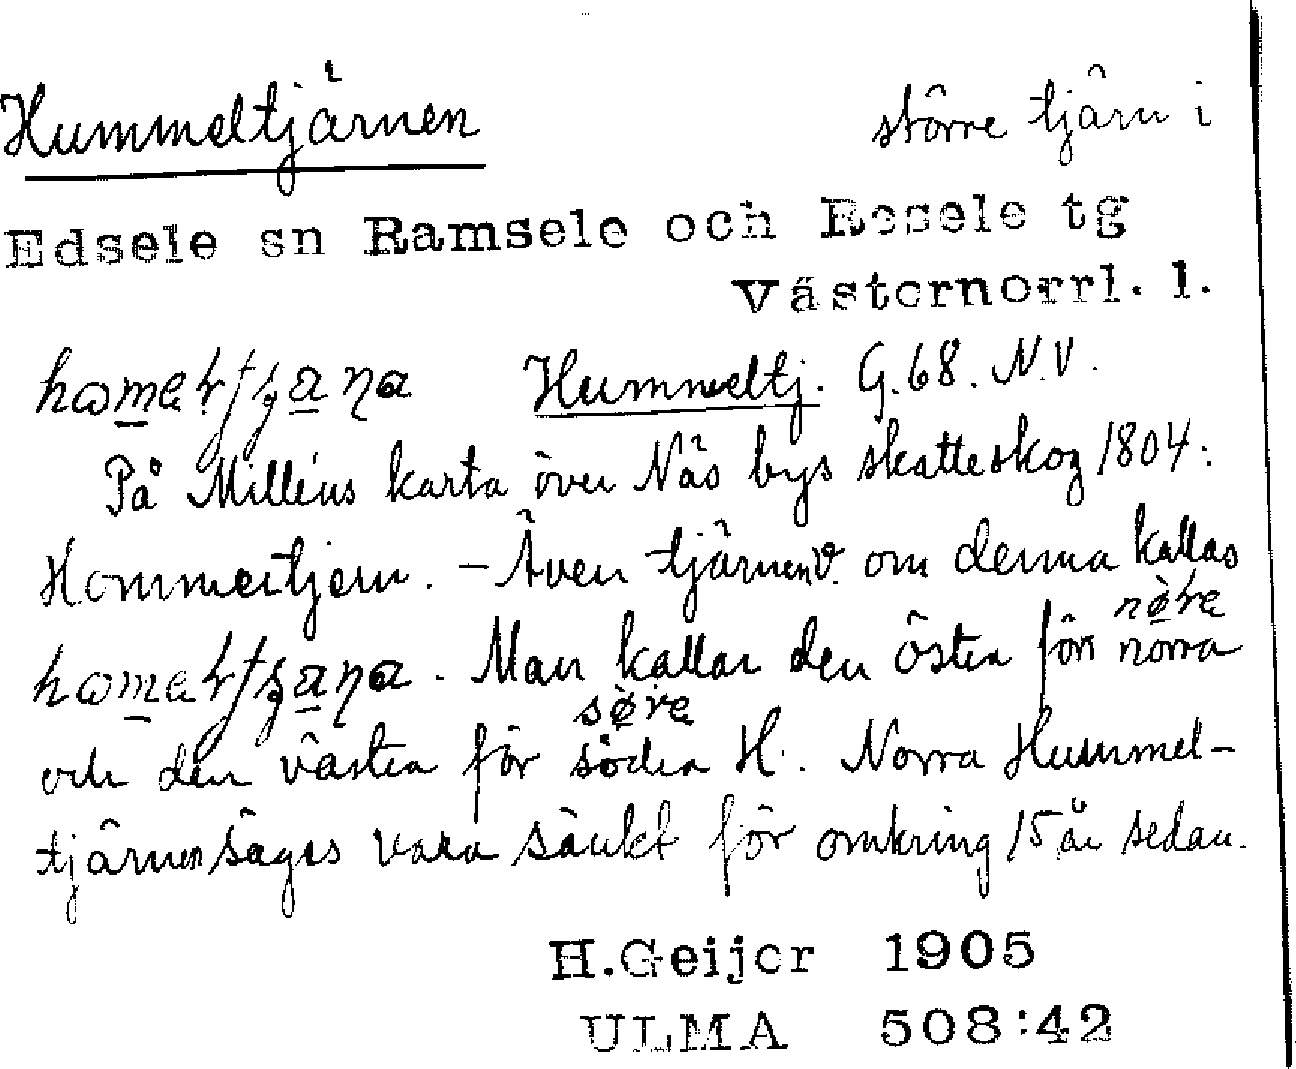 Hummeltjärnen större tjärn i
Edsele sn Ramsele och Resele tg
Västernorrl. l.
Hummeltj. G.68. N.V.
På Milléns karta över Näs bys skatteskog 1804:
Hommeltjern. – Även tjärnen v. om denna kallas
. Man kallar den östra för nörre norra
och den västra för søre södra H. Norra Hummel-
tjärnen säges vara sänkt för omkring 15 år sedan.
H.Geijer 1905
ULMA 508:42